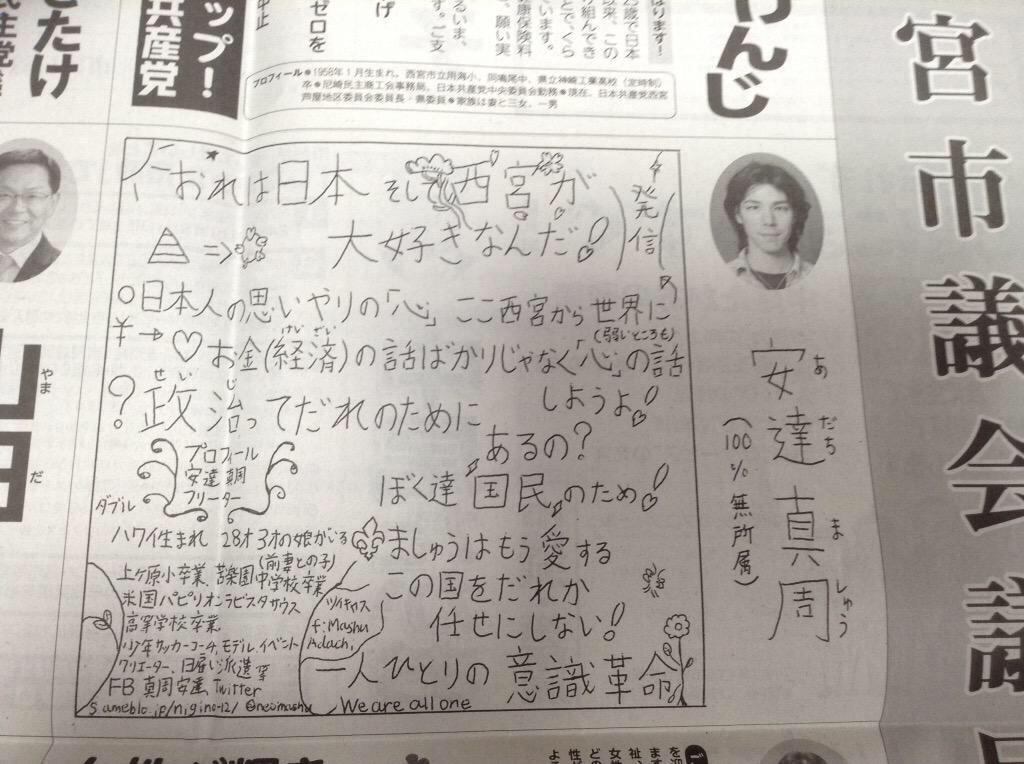 宮市議会議
んじ
ップ!
共産党
たけ
民主党
ゼロを
プロフィール●1958年1月生まれ。西宮市立用海小、同鳴尾中、県立神崎工業高校(定時制)
卒●尼崎民主商工会事務局、日本共産党中央委員会勤務●現在、日本共産党西宮
芦屋地区委員会委員長・県委員●家族は妻と三女、一男
おれは日本 そして西宮が
大好きなんだ!
発信
日本人の思いやりの「心」 ここ西宮から世界に
¥→♡お金(経済)の話ばかりじゃなく「心」の話
けいざい
(弱いところも)
しようよ!
?政治ってだれのために
せいじ
あるの?
ぼく達 国民のため!
プロフィール
安達真周
フリーター
ダブル
ハワイ生まれ 28才 3才の娘がいる
(前妻との子)
上ケ原小卒業 苦楽園中学校卒業
米国パピリオンラビスタサウス
高等学校卒業
少年サッカーコーチ、モデル、イベント
クリエーター、日雇い派遣等
FB 真周安達 Twitter
s.ameblo.jp/nigino-12/ @neomashu
ツイキャス
f:Mashu
Adachi
ましゅうはもう愛する
この国をだれか
任せにしない!
一人ひとりの意識革命
We are all one
安達真周
あだち ましゅう
(100%無所属)
やま
だ